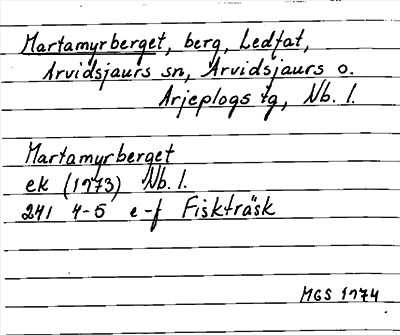 Martamyrberget, berg, Ledfat,
Arvidsjaurs sn, Arvidsjaurs o.
Arjeplogs tg, Nb. l.
Martamyrberget
ek (1973) Nb. l.
241 4-5 e-f Fiskträsk
MGS 1974